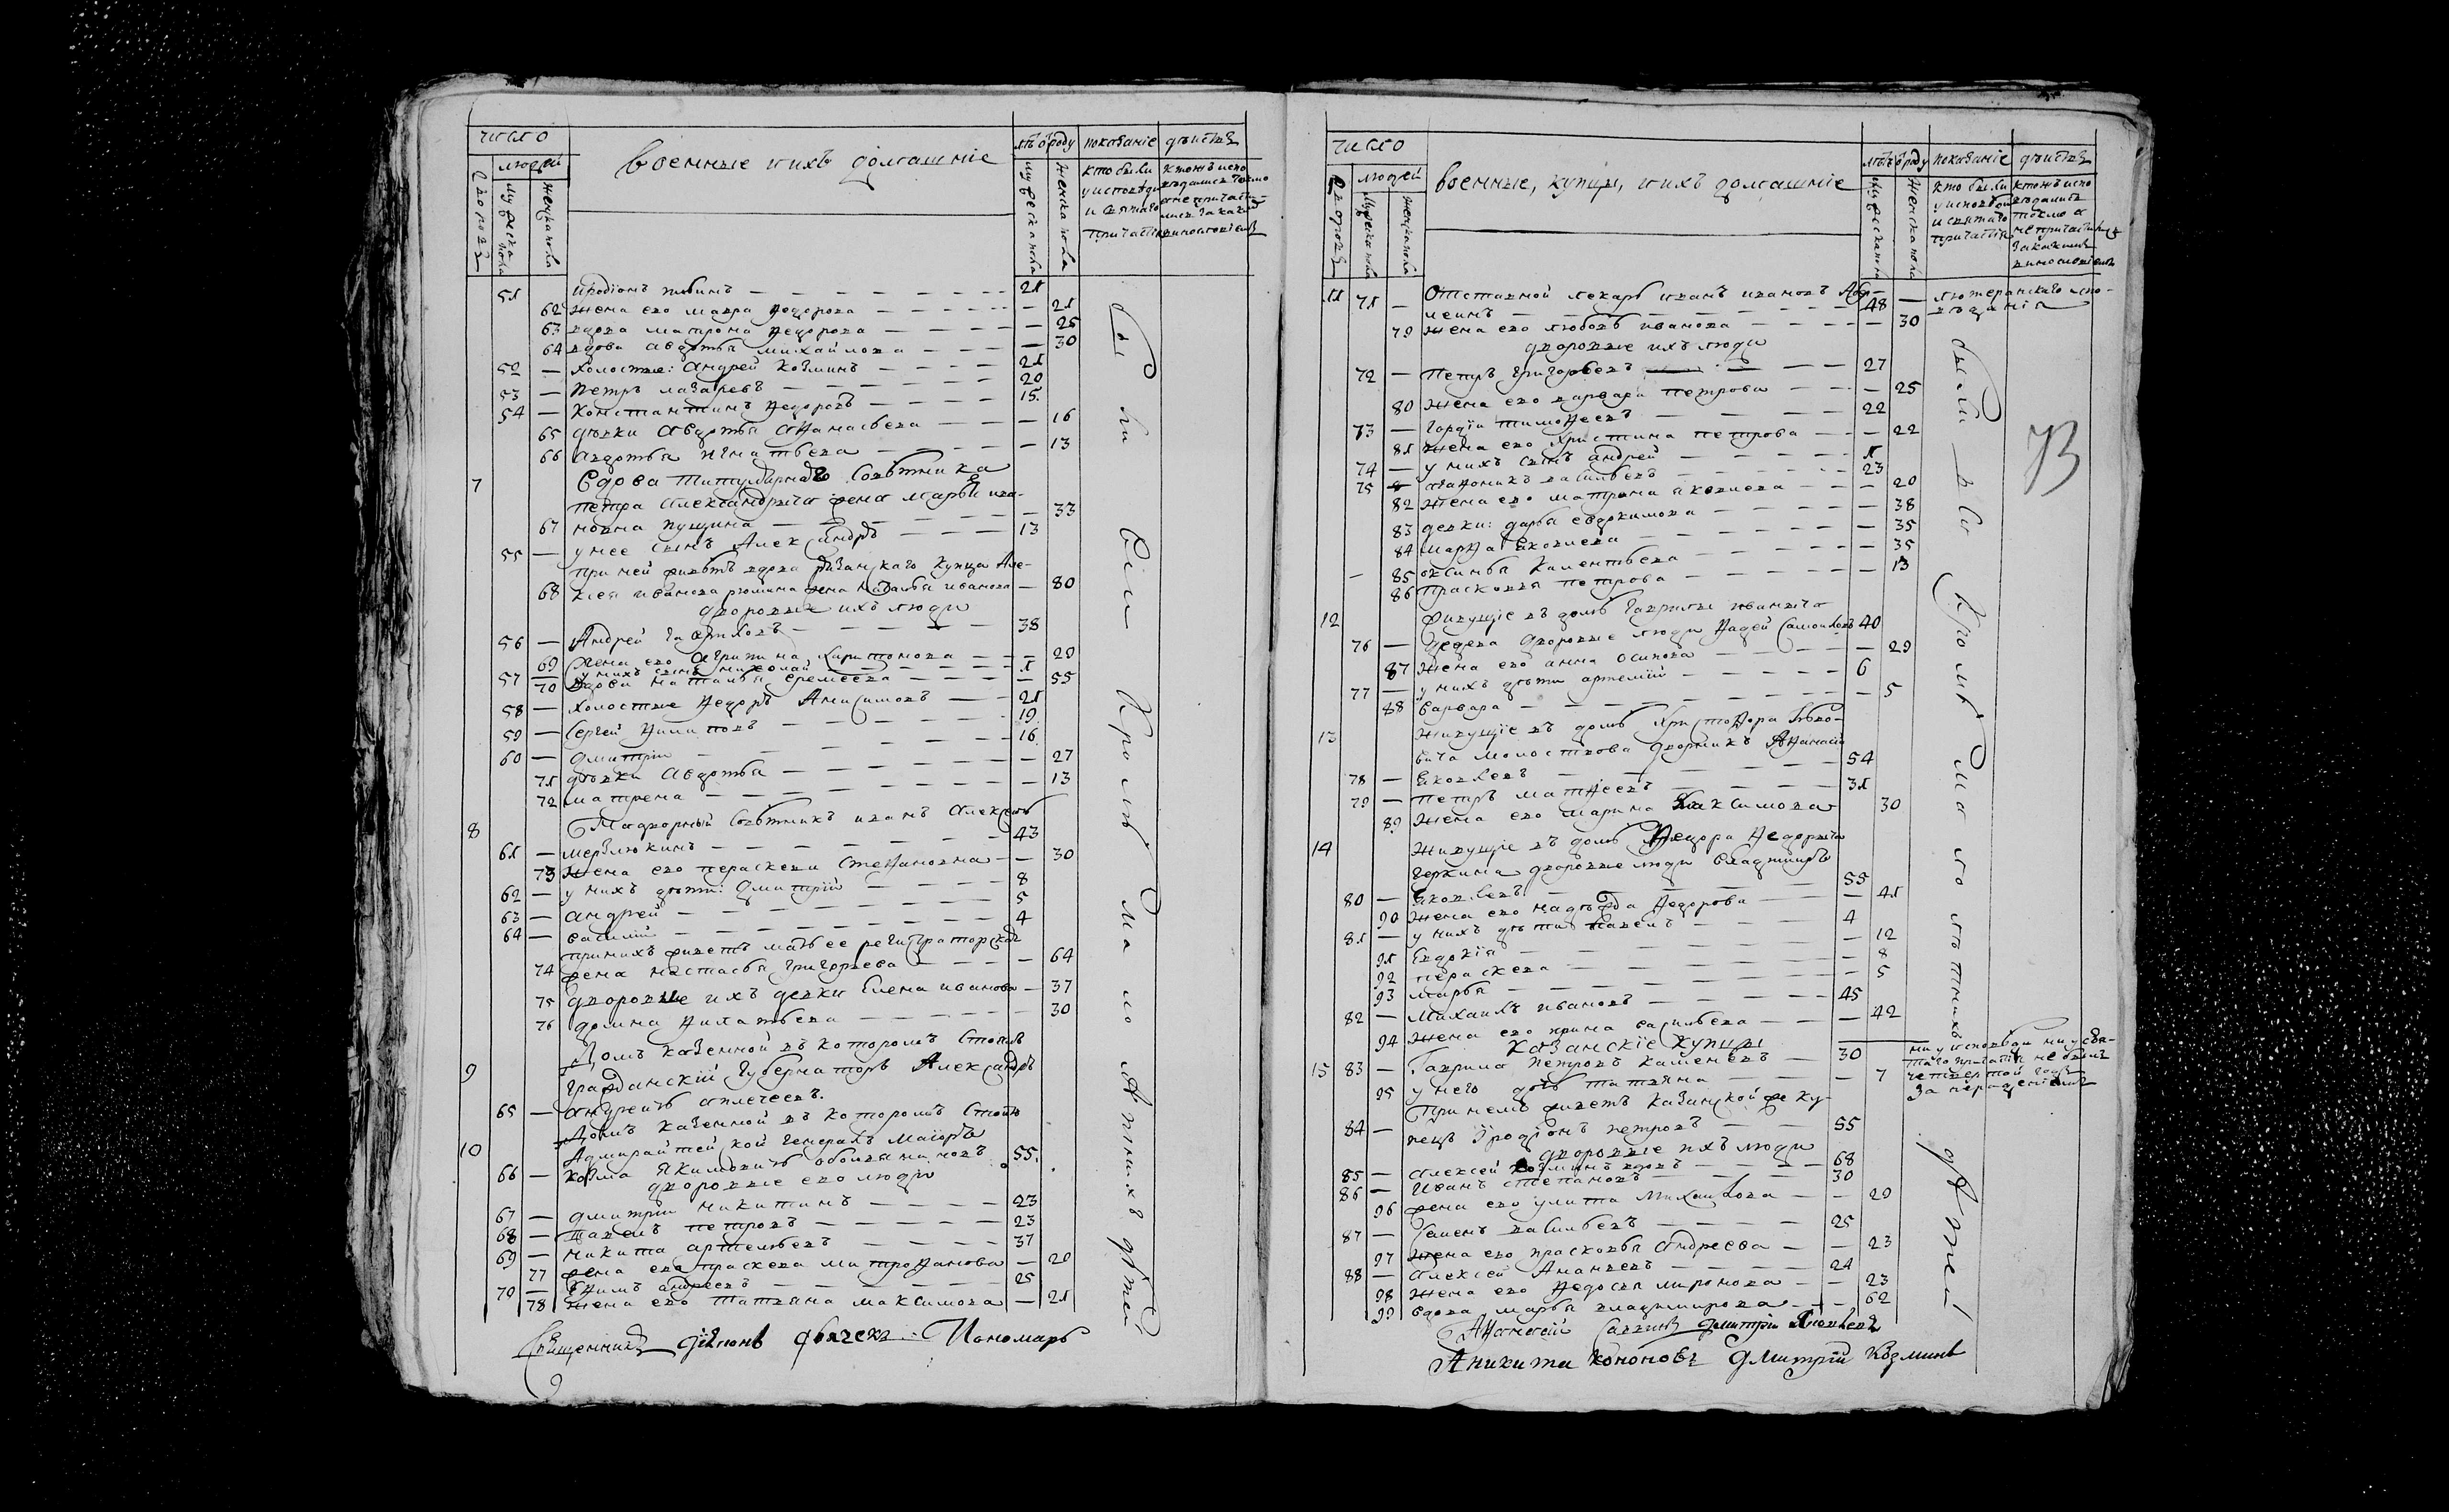 число
людей
военные и ихъ домашнїе
лѣтъ ѿ роду
показанїе
дѣйства
51 Иродїонъ 21
62 жена его мавра Федорова 21
63 вдова матрона Федорова 25
64 вдова авдотья михайлова 30
52 — холостые: андрей козминъ 21
53 — петръ лазаревъ 20
54 — константинъ Федоровъ 15
65 дѣвки авдотья афанасьева 16
66 авдотья игнатьева 13
7 вдова титулярнаго совѣтника
петра александрыча жена марья ива-
67 новна пущина 33
55 — у нее сынъ александръ 13
при ней живетъ вдова казанскаго купца але-
68 ксея иванова жена наталья иванова 80
дворовые ихъ люди
56 — Андрей гавриловъ 38
69 жена его агрипина харитонова 29
57 — у нихъ сынъ николай 1
70 вдова наталья еремеева 55
58 — холостые Федоръ Анисимовъ 21
59 — сергей Филиповъ 19
60 — дмитрїи 16
71 дѣвки авдотья 27
72 матрена 13
8 Надворный совѣтникъ иванъ алексѣевъ
61 — мерзлюкинъ 43
73 жена его параскева стефановна 30
62 — у нихъ дѣти: дмитрїй 8
63 — андрей 5
64 — василїй 4
при нихъ живетъ мать ее регистраторская
74 жена настасья григорьева 64
75 дворовые ихъ девки елена иванова 37
76 домна филатьева 30
9 Домъ казенной въ которомъ стоитъ
гражданскїй губернаторъ Александръ
65 — андреичъ аплечеевъ.
10 Домъ казенной въ которомъ стоитъ
адмиралтейской генералъ маїоръ
66 — козма якимовичь обольяниновъ 55
дворовые его люди
67 — дмитрїи никитинъ 23
68 — павелъ петровъ 23
69 — никита артемьевъ 37
77 жена его праскева митрофанова 20
70 — ефимъ андреевъ 25
78 жена его татьяна максимова 21
были всїи кромѣ малолѣтнихъ дѣтей
Священникъ дїаконъ дьячекъ Пономарь
число
людей
военные, купцы, и ихъ домашнїе
лѣтъ ѿ роду
показанїе
дѣйства
73
11 71 — Отставной лекарь иванъ ивановъ
48 — лютеранскаго испо-
ведания
79 жена его любовь иванова 30
дворовые ихъ люди
72 — петръ григорьевъ 27
80 жена его варвара петрова 25
73 — гордїи тимофеевъ 22
81 жена его христина петрова 22
74 — у нихъ сынъ андрей 1
75 — васильевъ 23
82 жена его матрона яковлева 20
83 девки: дарья евдокимова 38
84 марфа яковлева 35
85 оксинья 35
86 прасковья петрова 13
12 живущїе въ домѣ гаврилы иваныча
76 — дворовые люди фадей самойловъ 40
87 жена его анна осипова 29
77 — у нихъ дѣти артемїй 6
88 варвара 5
13 живущїе въ домѣ христофора львo-
вича молоствова дворникъ афанасїй
78 — яковлевъ 54
79 — петръ матфеевъ 31
89 жена его марина максимова 30
14 живущїе въ домѣ Федора Федорыча
геркина дворовые люди владимиръ
80 — яковлевъ 55
90 жена его надѣжда Федорова 41
81 — у нихъ дѣти павелъ 4
91 евдокїя 12
92 параскева 8
93 марья 5
82 — михаилъ ивановъ 45
94 жена его ирина васильева 42
казанскїе купцы
15 83 — гаврила петровъ каменевъ 30
95 у него дочь татьяна 7
ни у исповѣди ни у свя-
таго причастїя не былъ
четвертой годъ
за нерадѣнїемъ
при немъ живетъ казанской же ку-
84 — пецъ їродїонъ петровъ 55
дворовые ихъ люди
85 — алексей козминъ вдовъ 68
86 — иванъ степановъ 30
96 жена его улита михайлова 29
87 — васильевъ 25
97 жена его прасковья андреева 23
88 — алексей ананьевъ 24
98 жена его Федосья миронова 23
99 вдова марья владимирова 62
были вси кромѣ малолѣтнихъ дѣтей
Афанасїй Саввинъ Димитрїи Яковлевъ
Аникита Кононовъ Дмитрїй Козминъ